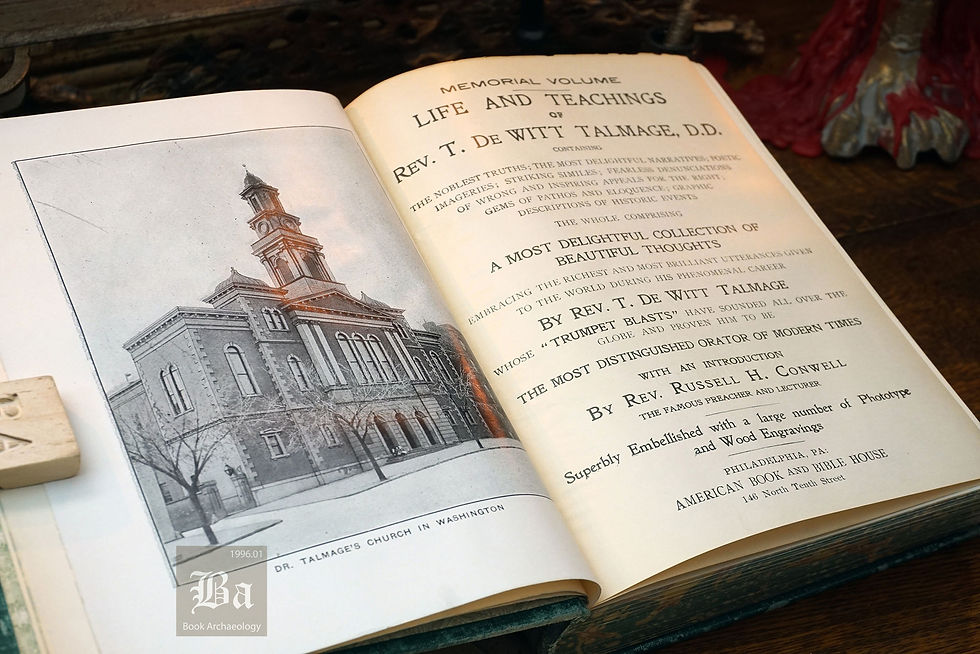 DR. TALMAGE'S CHURCH IN WASHINGTON
1996.01
Ba
Book Archaeology
MEMORIAL VOLUME
LIFE AND TEACHINGS
OF
REV. T. DE WITT TALMAGE, D.D.
CONTAINING
THE NOBLEST TRUTHS; THE MOST DELIGHTFUL NARRATIVES; POETIC
IMAGERIES; STRIKING SIMILES; FEARLESS DENUNCIATIONS
OF WRONG AND INSPIRING APPEALS FOR THE RIGHT;
GEMS OF PATHOS AND ELOQUENCE; GRAPHIC
DESCRIPTIONS OF HISTORIC EVENTS
THE WHOLE COMPRISING
A MOST DELIGHTFUL COLLECTION OF
BEAUTIFUL THOUGHTS
EMBRACING THE RICHEST AND MOST BRILLIANT UTTERANCES GIVEN
TO THE WORLD DURING HIS PHENOMENAL CAREER
BY REV. T. DE WITT TALMAGE
WHOSE "TRUMPET BLASTS" HAVE SOUNDED ALL OVER THE
GLOBE AND PROVEN HIM TO BE
THE MOST DISTINGUISHED ORATOR OF MODERN TIMES
WITH AN INTRODUCTION
BY REV. RUSSELL H. CONWELL
THE FAMOUS PREACHER AND LECTURER
Superbly Embellished with a large number of Phototype
and Wood Engravings
PHILADELPHIA, PA:
AMERICAN BOOK AND BIBLE HOUSE
140 North Tenth Street